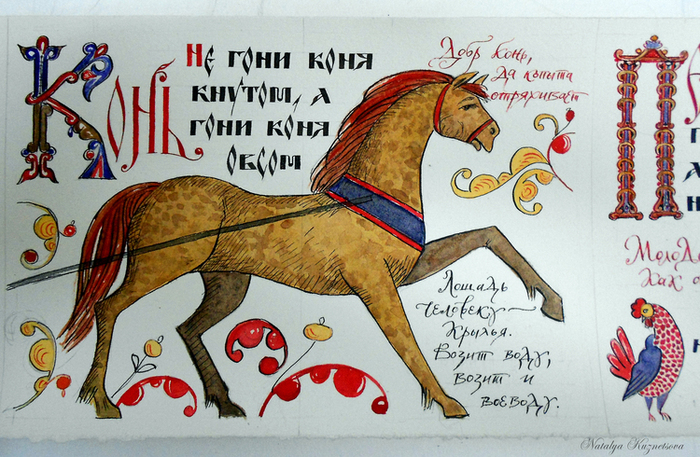 К
Конь.
Не гони коня
кнутом, а
гони коня
овсом
Добр конь,
да копыта
отряхивает
Лошадь
человеку ~
крылья.
Возит воду,
возит и
воеводу.
П
Молод
как
Natalya Kuznetsova